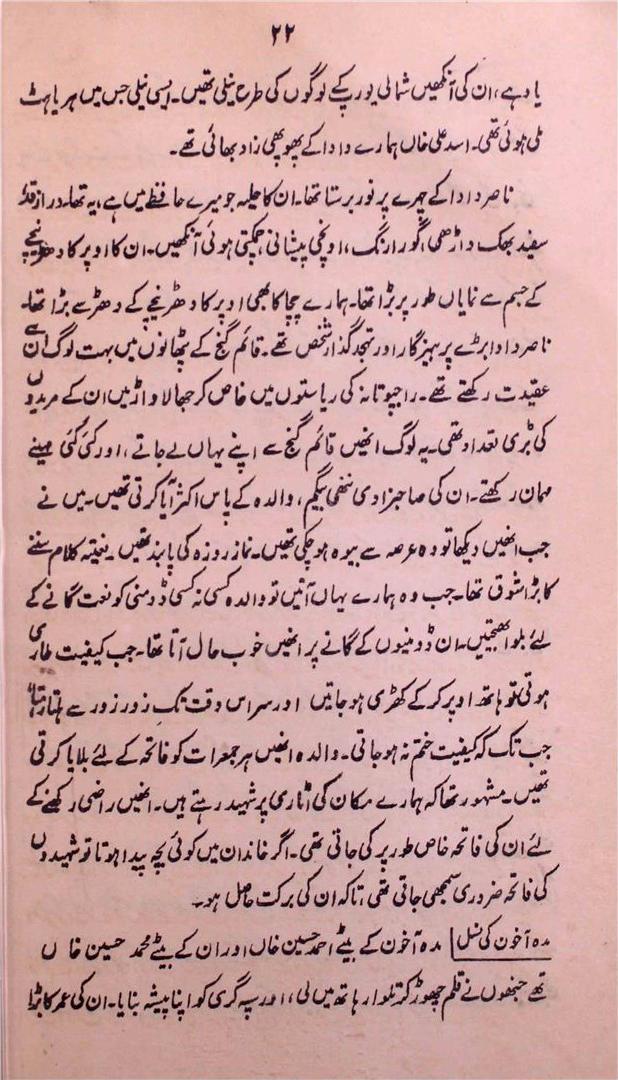 ۲۲
یاد ہے، ان کی آنکھیں شمالی یورپ کے لوگوں کی طرح نیلی تھیں۔ ایسی نیلی جس میں ہریاہٹ
ملی ہوئی تھی۔ اسد علی خاں ہمارے دادا کے پھوپھی زاد بھائی تھے۔
ناصر دادا کے چہرے پر نور برستا تھا۔ ان کا حلیہ جو میرے حافظے میں ہے، یہ تھا۔ دراز قد،
سفید بھک داڑھی، گورا رنگ، اونچی پیشانی، چمکتی ہوئی آنکھیں۔ ان کا اوپر کا دھڑ نیچے
کے جسم سے نمایاں طور پر بڑا تھا۔ ہمارے چچا کا بھی اوپر کا دھڑ نیچے کے دھڑ سے بڑا تھا۔
ناصر دادا بڑے پرہیزگار اور تہجد گذار شخص تھے۔ قائم گنج کے پٹھانوں میں بہت لوگ ان سے
عقیدت رکھتے تھے۔ راجپوتانہ کی ریاستوں میں خاص کر جھالاواڑ میں ان کے مریدوں
کی بڑی تعداد تھی۔ یہ لوگ انھیں قائم گنج سے اپنے یہاں لے جاتے، اور کئی کئی مہینے
مہمان رکھتے۔ ان کی صاحبزادی ننھی بیگم، والدہ کے پاس اکثر آیا کرتی تھیں۔ میں نے
جب انھیں دیکھا تو وہ عرصہ سے بیوہ ہو چکی تھیں۔ نماز روزہ کی پابند تھیں۔ نعتیہ کلام سننے
کا بڑا شوق تھا۔ جب وہ ہمارے یہاں آتیں تو والدہ کسی نہ کسی ڈومنی کو نعت گانے کے
لئے بلوا بھیجتیں۔ ان ڈومنیوں کے گانے پر انھیں خوب حال آتا تھا۔ جب کیفیت طاری
ہوتی تو ہاتھ اوپر کر کے کھڑی ہو جاتیں اور سر اس وقت تک زور زور سے ہلتا رہتا
جب تک کہ کیفیت ختم نہ ہو جاتی۔ والدہ انھیں ہر جمعرات کو فاتحہ کے لئے بلایا کرتی
تھیں۔ مشہور تھا کہ ہمارے مکان کی اٹاری پر شہید رہتے ہیں۔ انھیں راضی رکھنے کے
لئے ان کی فاتحہ خاص طور پر کی جاتی تھی۔ اگر خاندان میں کوئی بچہ پیدا ہوتا تو شہیدوں
کی فاتحہ ضروری سمجھی جاتی تھی، تاکہ ان کی برکت حاصل ہو۔
مدہ آخون کی نسل مدہ آخون کے بیٹے احمد حسین خاں اور ان کے بیٹے محمد حسین خاں
تھے جنھوں نے قلم چھوڑ کر تلوار ہاتھ میں لی، اور سپہ گری کو اپنا پیشہ بنایا۔ ان کی عمر کا بڑا